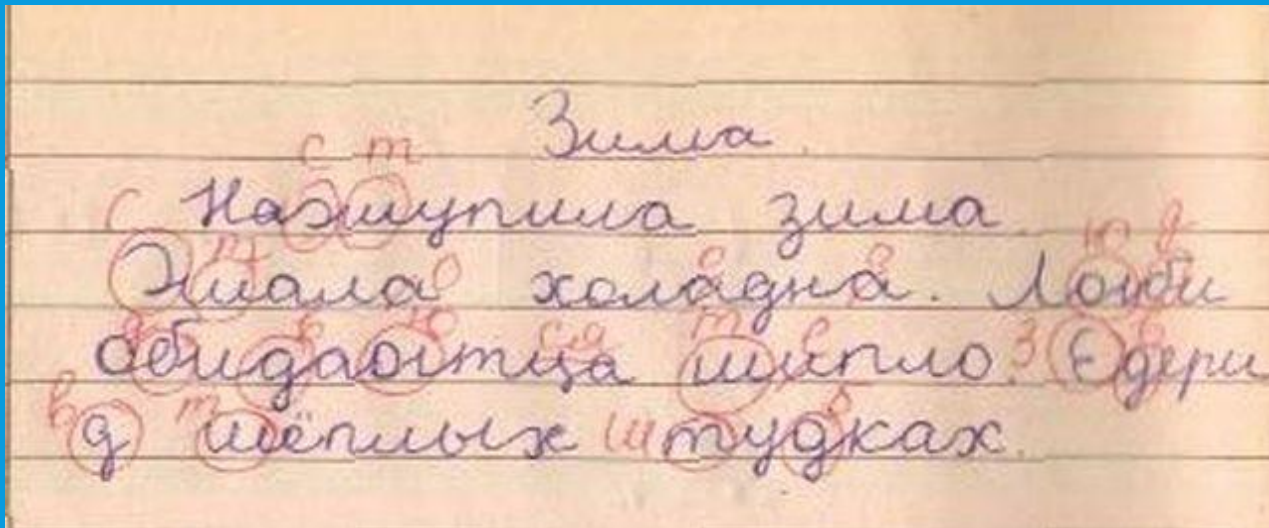 Зима.
Нахшупила зима.
Хшала холадна. Лоиби
обидаоıтца шипло. Єдери
д шёплых тудках.